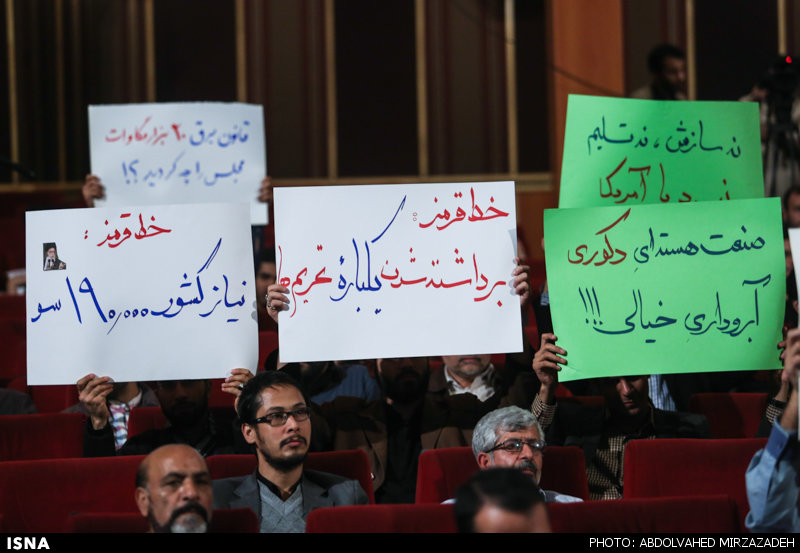 قانون برق ۲۰ هزار مگاوات
مجلس را چه کردید ؟!
خط قرمز :
نیاز کشور ۱۹۰٫۰۰۰ سو
خط قرمز :
برداشته شدن یکبارهٔ تحریم ها
نه سازش ، نه تسلیم
نبرد با آمریکا
صنعت هسته‌ایِ دکوری
آبروداریِ خیالی !!!
ISNA
PHOTO: ABDOLVAHED MIRZAZADEH